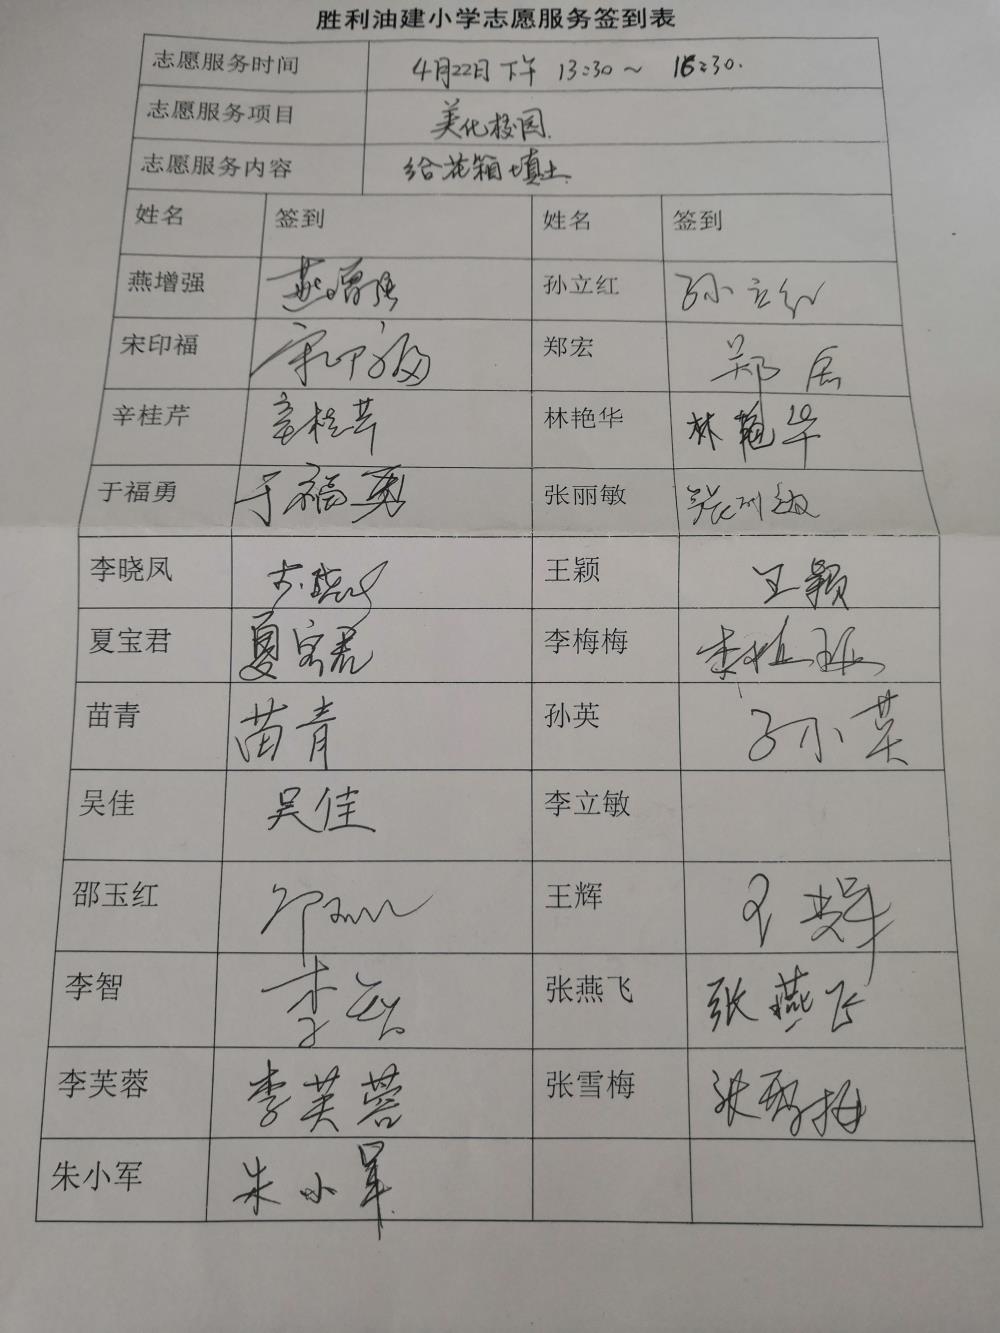 胜利油建小学志愿服务签到表
志愿服务时间 4月22日下午 13:30～ 16:30.
志愿服务项目 美化校园.
志愿服务内容 给花箱填土.
姓名 签到 姓名 签到
燕增强 燕增强 孙立红 孙立红
宋印福 宋印福 郑宏 郑宏
辛桂芹 辛桂芹 林艳华 林艳华
于福勇 于福勇 张丽敏 张丽敏
李晓凤 李晓凤 王颖 王颖
夏宝君 夏宝君 李梅梅 李梅梅
苗青 苗青 孙英 孙英
吴佳 吴佳 李立敏
邵玉红 邵玉红 王辉 王辉
李智 李智 张燕飞 张燕飞
李芙蓉 李芙蓉 张雪梅 张雪梅
朱小军 朱小军